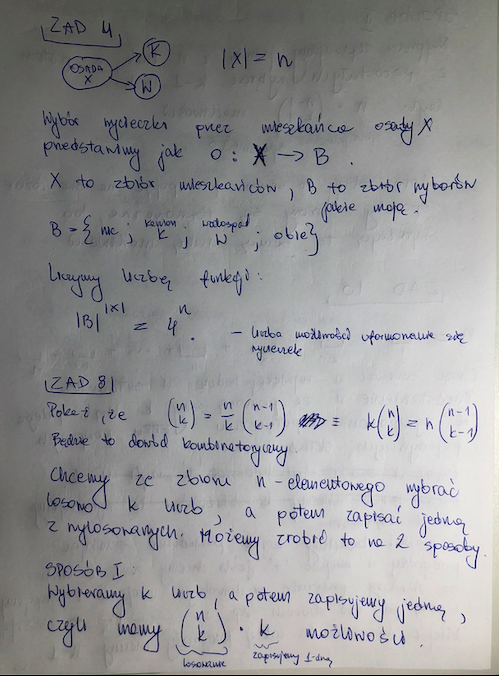 ZAD 4
OSADA X K W |X| = n
Wybór wycieczki przez mieszkańca osady X
przedstawmy jak o : X → B .
X to zbiór mieszkańców, B to zbiór wyborów
jakie mają.
B = { nic ; kanion K ; wodospad W ; obie}
Liczymy liczbę funkcji:
|B|^|X| = 4^n . – liczba możliwości uformowania się
wycieczek
ZAD 8
Pokaż, że (n k) = n/k (n-1 k-1) ≡ k(n k) = n(n-1 k-1)
Będzie to dowód kombinatoryczny.
Chcemy ze zbioru n-elementowego wybrać
losowo k liczb, a potem zapisać jedną
z wylosowanych. Możemy zrobić to na 2 sposoby.
SPOSÓB I :
Wybieramy k liczb, a potem zapisujemy jedną,
czyli mamy (n k) · k możliwości.
losowanie zapisujemy 1-dną